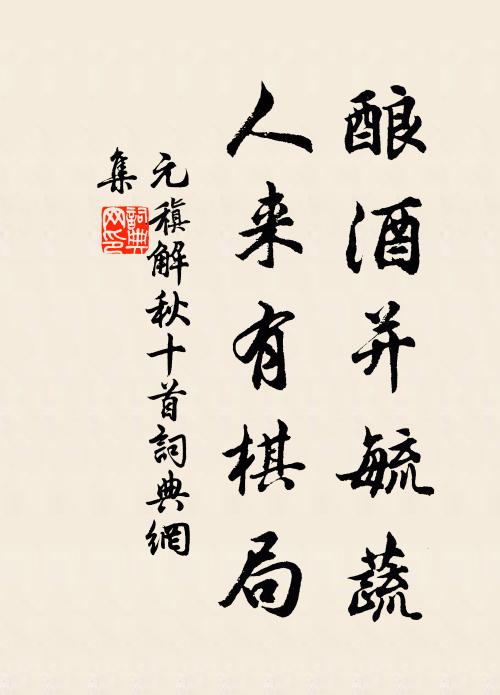 酿酒并毓蔬
人来有棋局
元稹解秋十首詞典網
集
詞典网印